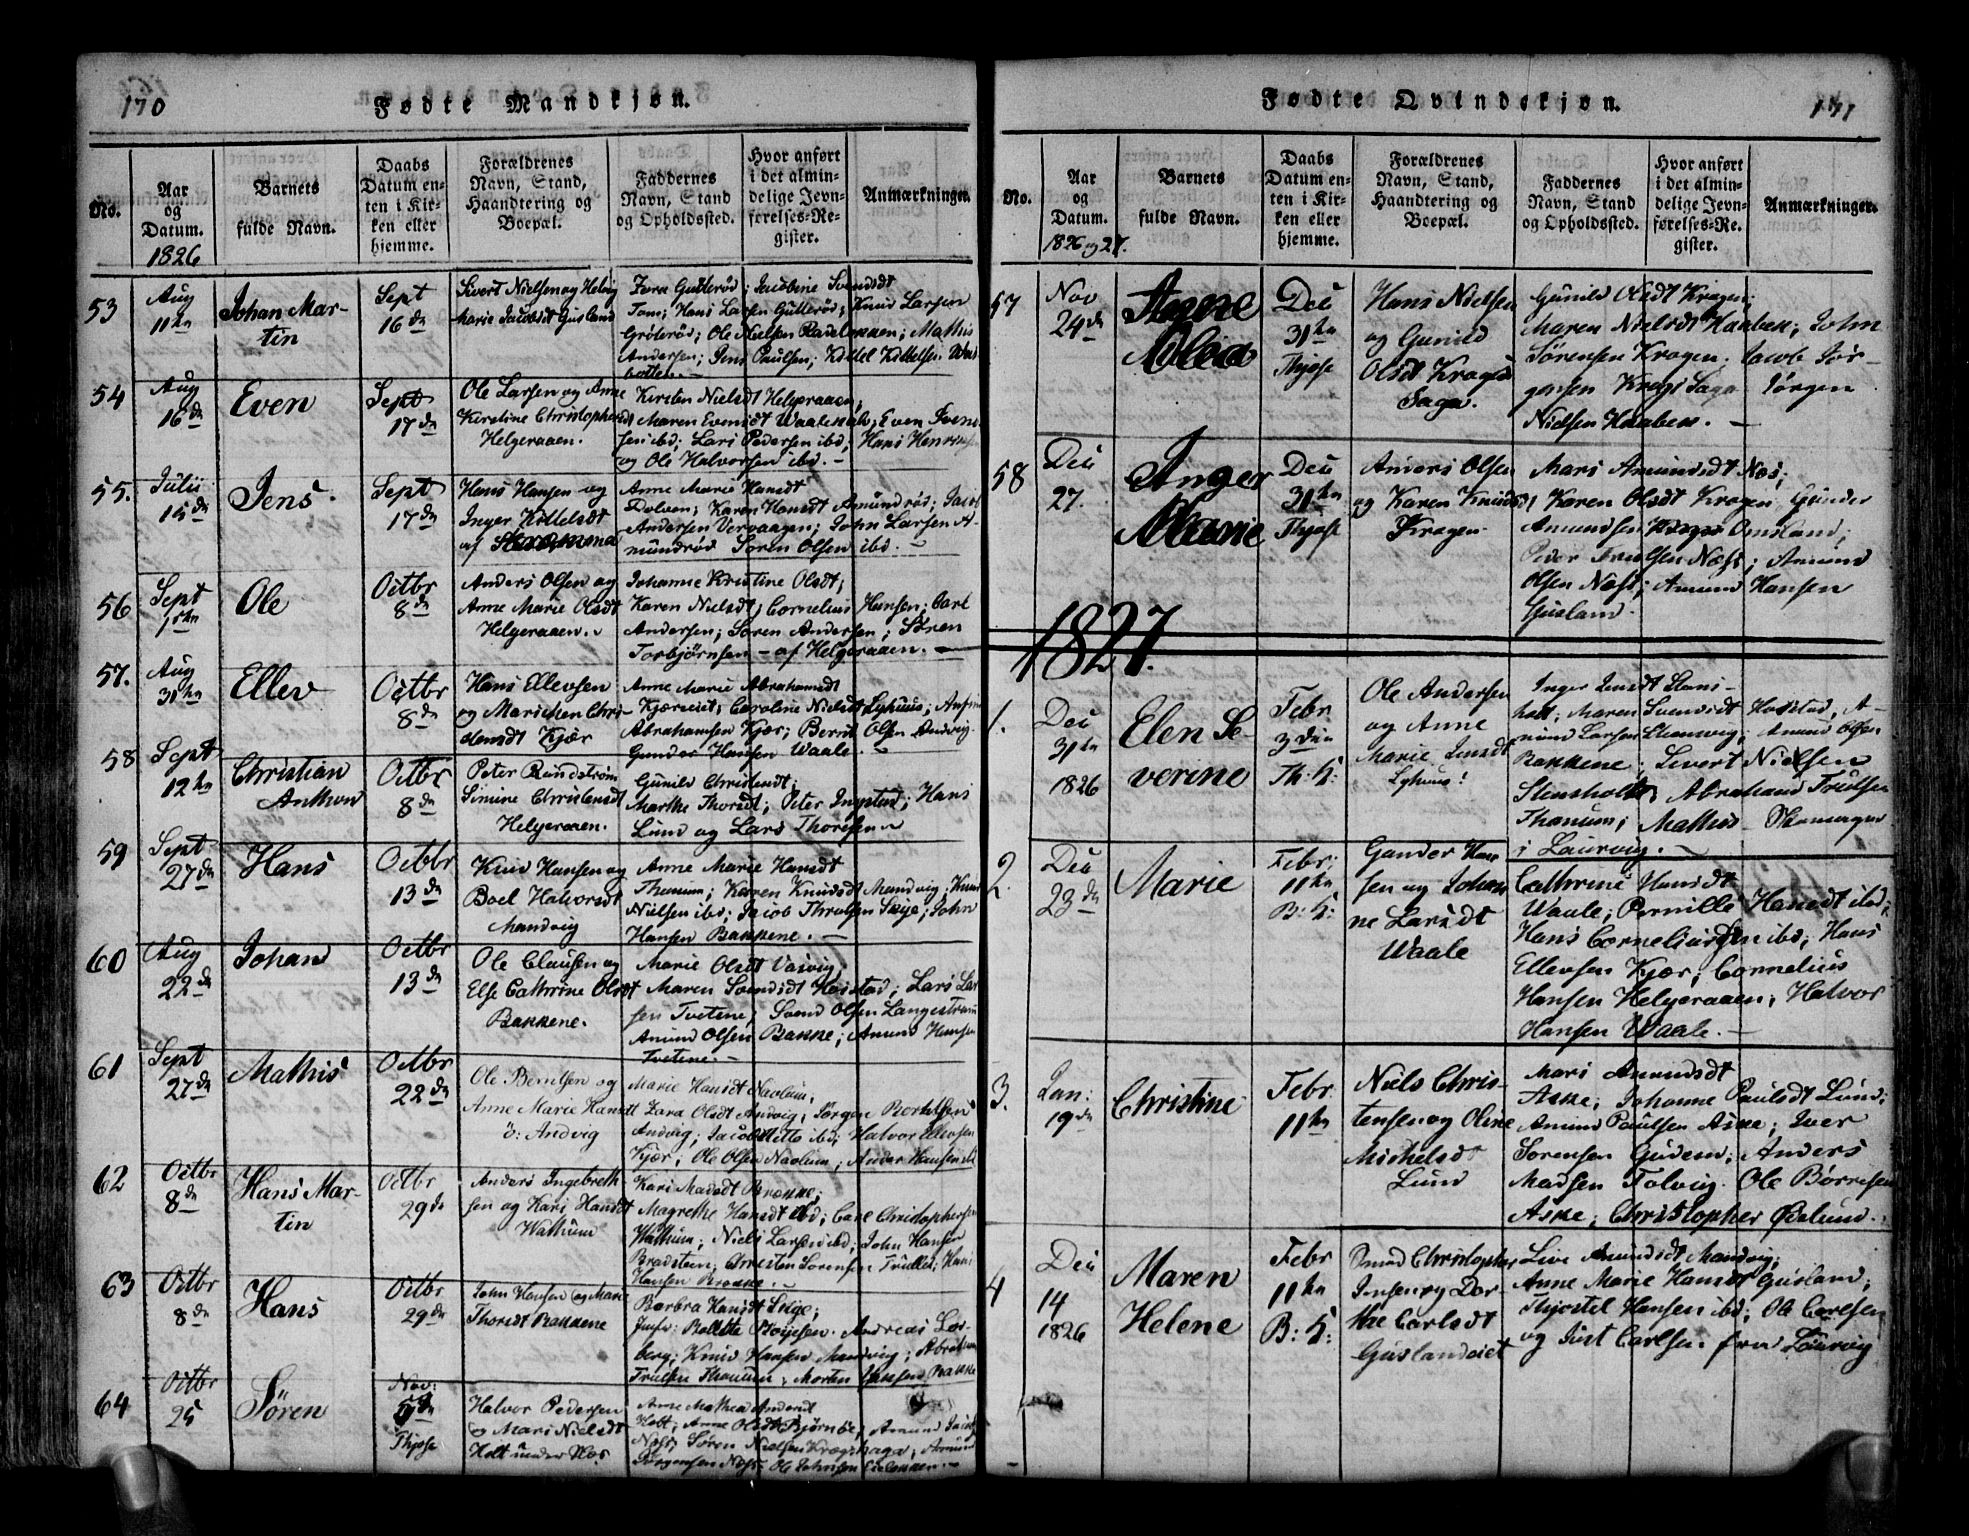 170
Fødte Mandkjøn.
No.
Aar
og
Datum.
1826
Barnets
fulde Navn.
Daabs
Datum en-
ten i Kir-
ken eller
hjemme.
Forældrenes
Navn, Stand,
Haandtering og
Boepæl.
Faddernes
Navn, Stand
og Opholdssted.
Hvor anført
i det almin-
delige Jevn-
førelses-Re-
gister.
Anmærkninger.
53
Aug
11te
Johan Mar-
tin
Sept
16de
Sivert Nielsen og Helvig
Marie Jacobsdt Gusland
Zara Gutterød; Jacobine Svendsdt
Tom; Hans Larsen Gutterød; Knud Larsen
Grøterød; Ole Nielsen; Mathis
Andersen; Jens Paulsen; Kittel Kittelsen
54
Aug
16de
Even
Sept
17de
Ole Larsen og Anne
Kirstine Christophersdt
Helgeraaen.
Kirsten Nielsdt Helgeraaen;
Maren Evensdt; Even Iven-
sen ibd; Lars Pedersen ibd; Hans
og Ole Halvorsen ibd. -
55.
Julii
15de
Jens.
Sept
17de
Hans Hansen og
Inger Kittelsdt
af
Anne Marie Hansdt
Dolven; Karen Hansdt Amundrød; Jacob
Andersen Vervaagen; John Larsen A-
mundrød Søren Olsen ibd. -
56
Sept
15te
Ole
Octbr
8de
Anders Olsen og
Anne Marie Olsdt
Helgeraaen.
Johanne Kristine Olsdt;
Karen Nielsdt; Cornelius Hansen; Carl
Andersen; Søren Andersen; Søren
Torbjørnsen - af Helgeraaen. -
57.
Aug
31te
Ellev
Octbr
8de
Hans Ellevsen
og Marichen Chris-
tensdt Kjær
Anne Marie Abrahamsdt
Kjæreiet; Caroline Nielsdt Lyhuus;
Abrahamsen Kjær; Bernt Olsen Andvig
Gunder Hansen Waale. -
58
Sept
12te
Christian
Anthon
Octbr
8de
Peter Rundstrøm
Simine Christensdt
Helgeraaen.
Gunild Christensdt;
Marthe Thorsdt; Peter Ingstad; Hans
Lund og Lars Thoresen
59
Sept
27de
Hans
Octbr
13de
Knud Hansen og
Boel Halvorsdt
Manvig
Anne Marie Hansdt
Thanum; Karen Knudsdt Mandvig; Knud
Nielsen ibd; Jacob Thrulsen Skije; John
Hansen Bakkene. -
60
Aug
22de
Johan
Octbr
13de
Ole Clausen og
Else Cathrine Olsdt
Bakkene.
Marie Olsdt Vasvig;
Maren Svendsdt Havstad; Lars Lar-
sen Tvetene; Svend Olsen Langestrand
Amund Olsen Bakke; Amund Hansen
Tvetene. -
61
Sept
27de
Mathis
Octbr
22de
Ole Berntsen og
Anne Marie Hansdt
ø: Andvig
Marie Hansdt Naolum;
Zara Olsdt Andvig; Jørgen
Andvig; Jacob ditto ibd; Halvor Ellevsen
Kjær; Ole Olsen Naolum; Ander Hansen ibd
62
Octbr
8de
Hans Mar-
tin
Octbr
29de
Anders Ingebreth-
sen og Kari Hansdt
Wathum
Kari Madsdt Brekke;
Magrethe Hansdt ibd; Carl Christophersen
Wathum; Niels Larsen ibd; John Hansen
Bradsteen; Christen Sørensen; Hans
Hansen Brekke. -
63
Octbr
8de
Hans
Octbr
29de
John Hansen og Maren
Thorsdt Bakkene
Barbra Hansdt Skije;
Jmfr: Bolette Boyesen. Andreas Lor-
berg; Knud Hansen Mandvig; Abraham
Trulsen Thanum; Morten Hansen Bakke
64
Octbr
25
Søren
Nov:
5te
Thjøse
Halvor Pedersen
og Mari Nielsdt
Holt under Næs
Anne Mathea Andersdt
Holt; Anne Olsdt Bjørnbo; Amund Jacobs
Næs; Søren Nielsen Kragshaga; Amund
Jørgensen Næs; Ole Johnsen

171
Fødte Qvindekjøn.
No.
Aar
og
Datum.
1826 og 27.
Barnets
fulde Navn.
Daabs
Datum en-
ten i Kir-
ken eller
hjemme.
Forældrenes
Navn, Stand,
Haandtering og
Boepæl.
Faddernes
Navn, Stand
og Opholdssted.
Hvor anført
i det almin-
delige Jevn-
førelses-Re-
gister.
Anmærkninger.
57
Nov
24de
Anne
Dec
31te
Thjøse
Hans Nielsen
og Gunild
Olsdt Krags
Saga.
Gunild Olsdt Kragen;
Maren Nielsdt Haabek; John
Sørensen Kragen; Jacob Jør-
gensen Krags Saga Jørgen
Nielsen Haabek. -
58
Dec
27.
Inger
Marie
Dec
31te
Thjøse
Anders Olsen
og Karen Knudsdt
Kragen
Mari Amundsdt Næs;
Karen Olsdt Kragen; Gunder
Amundsen Omsland;
Peder Trulsen Næss; Amund
Olsen Næss; Amund Hansen
Gusland.
1827.
1.
Dec
31te
1826
Elen Se-
verine
Febr
3die
Th: K:
Ole Andersen
og Anne
Marie Jensdt
Lyhuus!
Inger Jensdt Stens-
holt; Maren Svendsdt Havstad; A-
mund Larsen; Amund Olsen
Bakkene; Severt Nielsen
Stensholt; Abraham Trulsen
Thanum; Mathis
i Laurvig. -
2.
Dec
23de
Marie
Febr:
11te
B: K:
Gunder Han-
sen og Johan-
ne Larsdt
Waale
Cathrine Hansdt
Waale; Pernille Hansdt ibd;
Hans Corneliusen ibd; Hans
Ellevsen Kjær; Cornelius
Hansen Helgeraaen; Halvor
Hansen Waale. -
3.
Jan:
19de
Christine
Febr
11te
Niels Chris-
tensen og Oline
Michelsdt
Lund
Mari Amundsdt
Aske; Johanne Paulsdt Lund;
Amund Paulsen Aske; Iver
Sørensen Gudem; Anders
Madsen Tolvig. Ole Børresen
Aske; Christopher Ødelund.
4
Dec
14
1826
Maren
Helene
Febr
11te
B: K:
Christopher
Jensen og Dor-
the Carlsdt
Guslandeiet
Live Amundsdt Mandvig;
Anne Marie Hansdt Gusland;
Thjostel Hansen ibd; Ole Carlsen
og Just Carlsen fra Laurvig